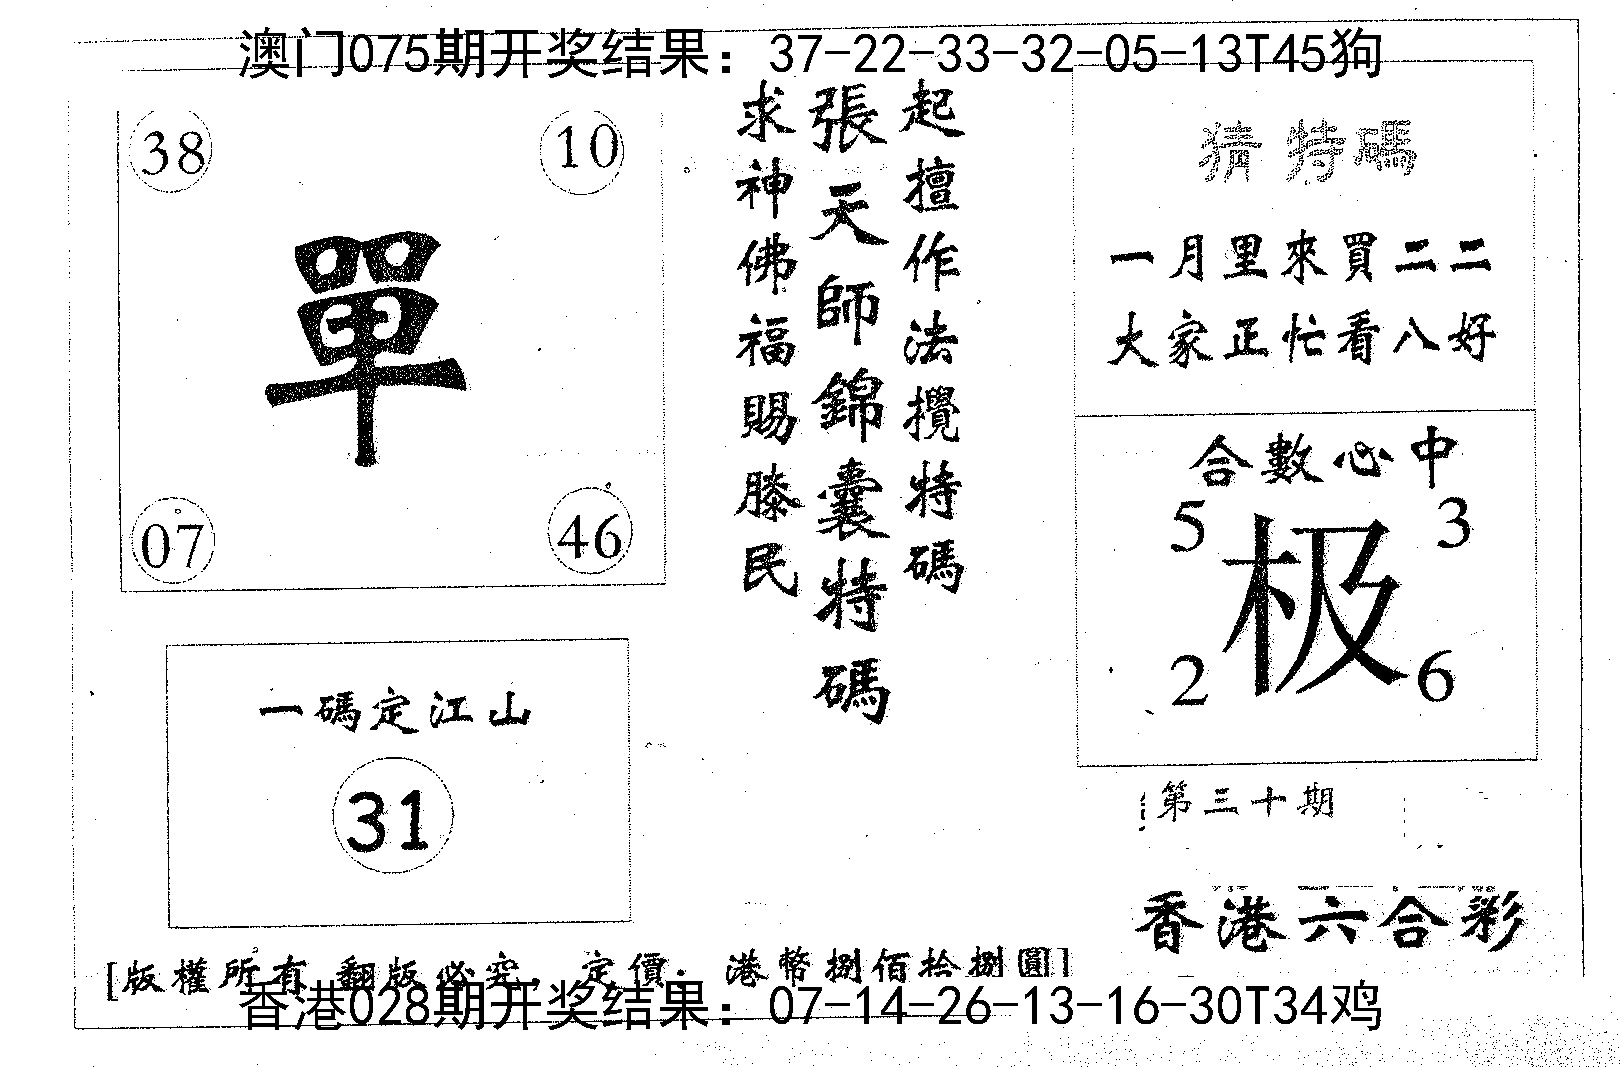 澳门075期开奖结果：37-22-33-32-05-13T45狗
38
10
單
07
46
一碼定江山
31
求神佛福賜滕民
張天師錦囊特碼
起擅作法攪特碼
猜特碼
一月里來買二二
大家正忙看八好
合數心中
5
3
极
2
6
第三十期
香港六合彩
[版權所有 翻版必究，定價．港幣捌佰拾捌圓]
香港028期开奖结果：07-14-26-13-16-30T34鸡